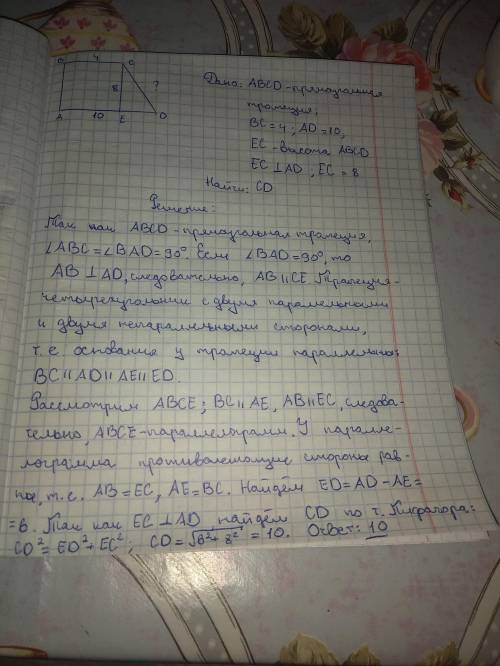 B 4 C
8 ?
A 10 E D
Дано: ABCD - прямоугольная
трапеция;
BC = 4; AD = 10,
EC - высота ABCD
EC ⊥ AD, EC = 8
Найти: CD
Решение:
Так как ABCD - прямоугольная трапеция,
∠ABC = ∠BAD = 90°. Если ∠BAD = 90°, то
AB ⊥ AD, следовательно, AB || CE. Трапеция -
четырехугольник с двумя параллельными
и двумя непараллельными сторонами,
т.е. основания у трапеции параллельны:
BC || AD || AE || ED.
Рассмотрим ABCE; BC || AE, AB || EC, следова-
тельно, ABCE - параллелограмм. У паралле-
лограмма противолежащие стороны рав-
ны, т.е. AB = EC, AE = BC. Найдём ED = AD - AE =
= 6. Так как EC ⊥ AD найдём CD по т. Пифагора:
CD² = ED² + EC²; CD = √6² + 8² = 10. Ответ: 10